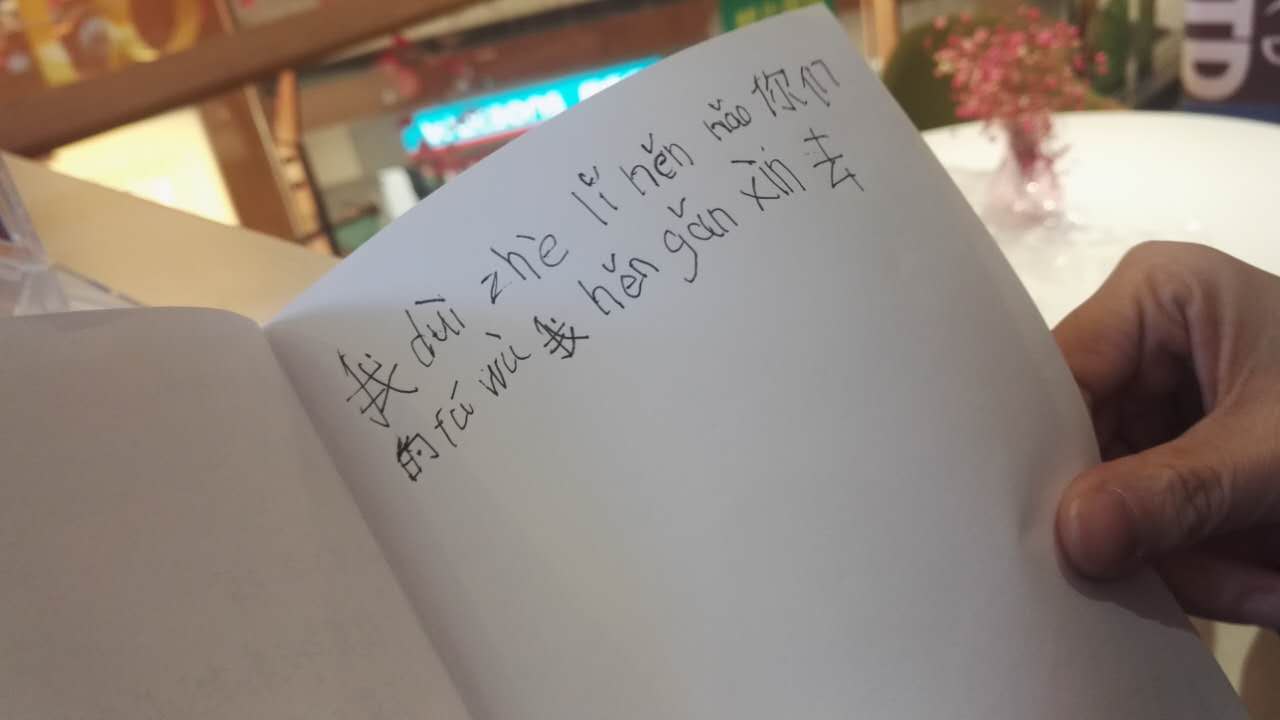 我 duì zhè lǐ hěn hǎo 你们
的 fú wù 我 hěn gǎn xìn 去
TD